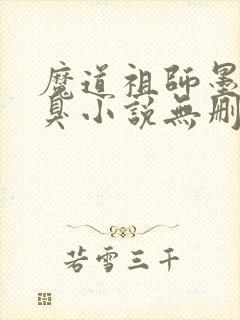 魔道祖師墨
臭小說無刪
若雪三千